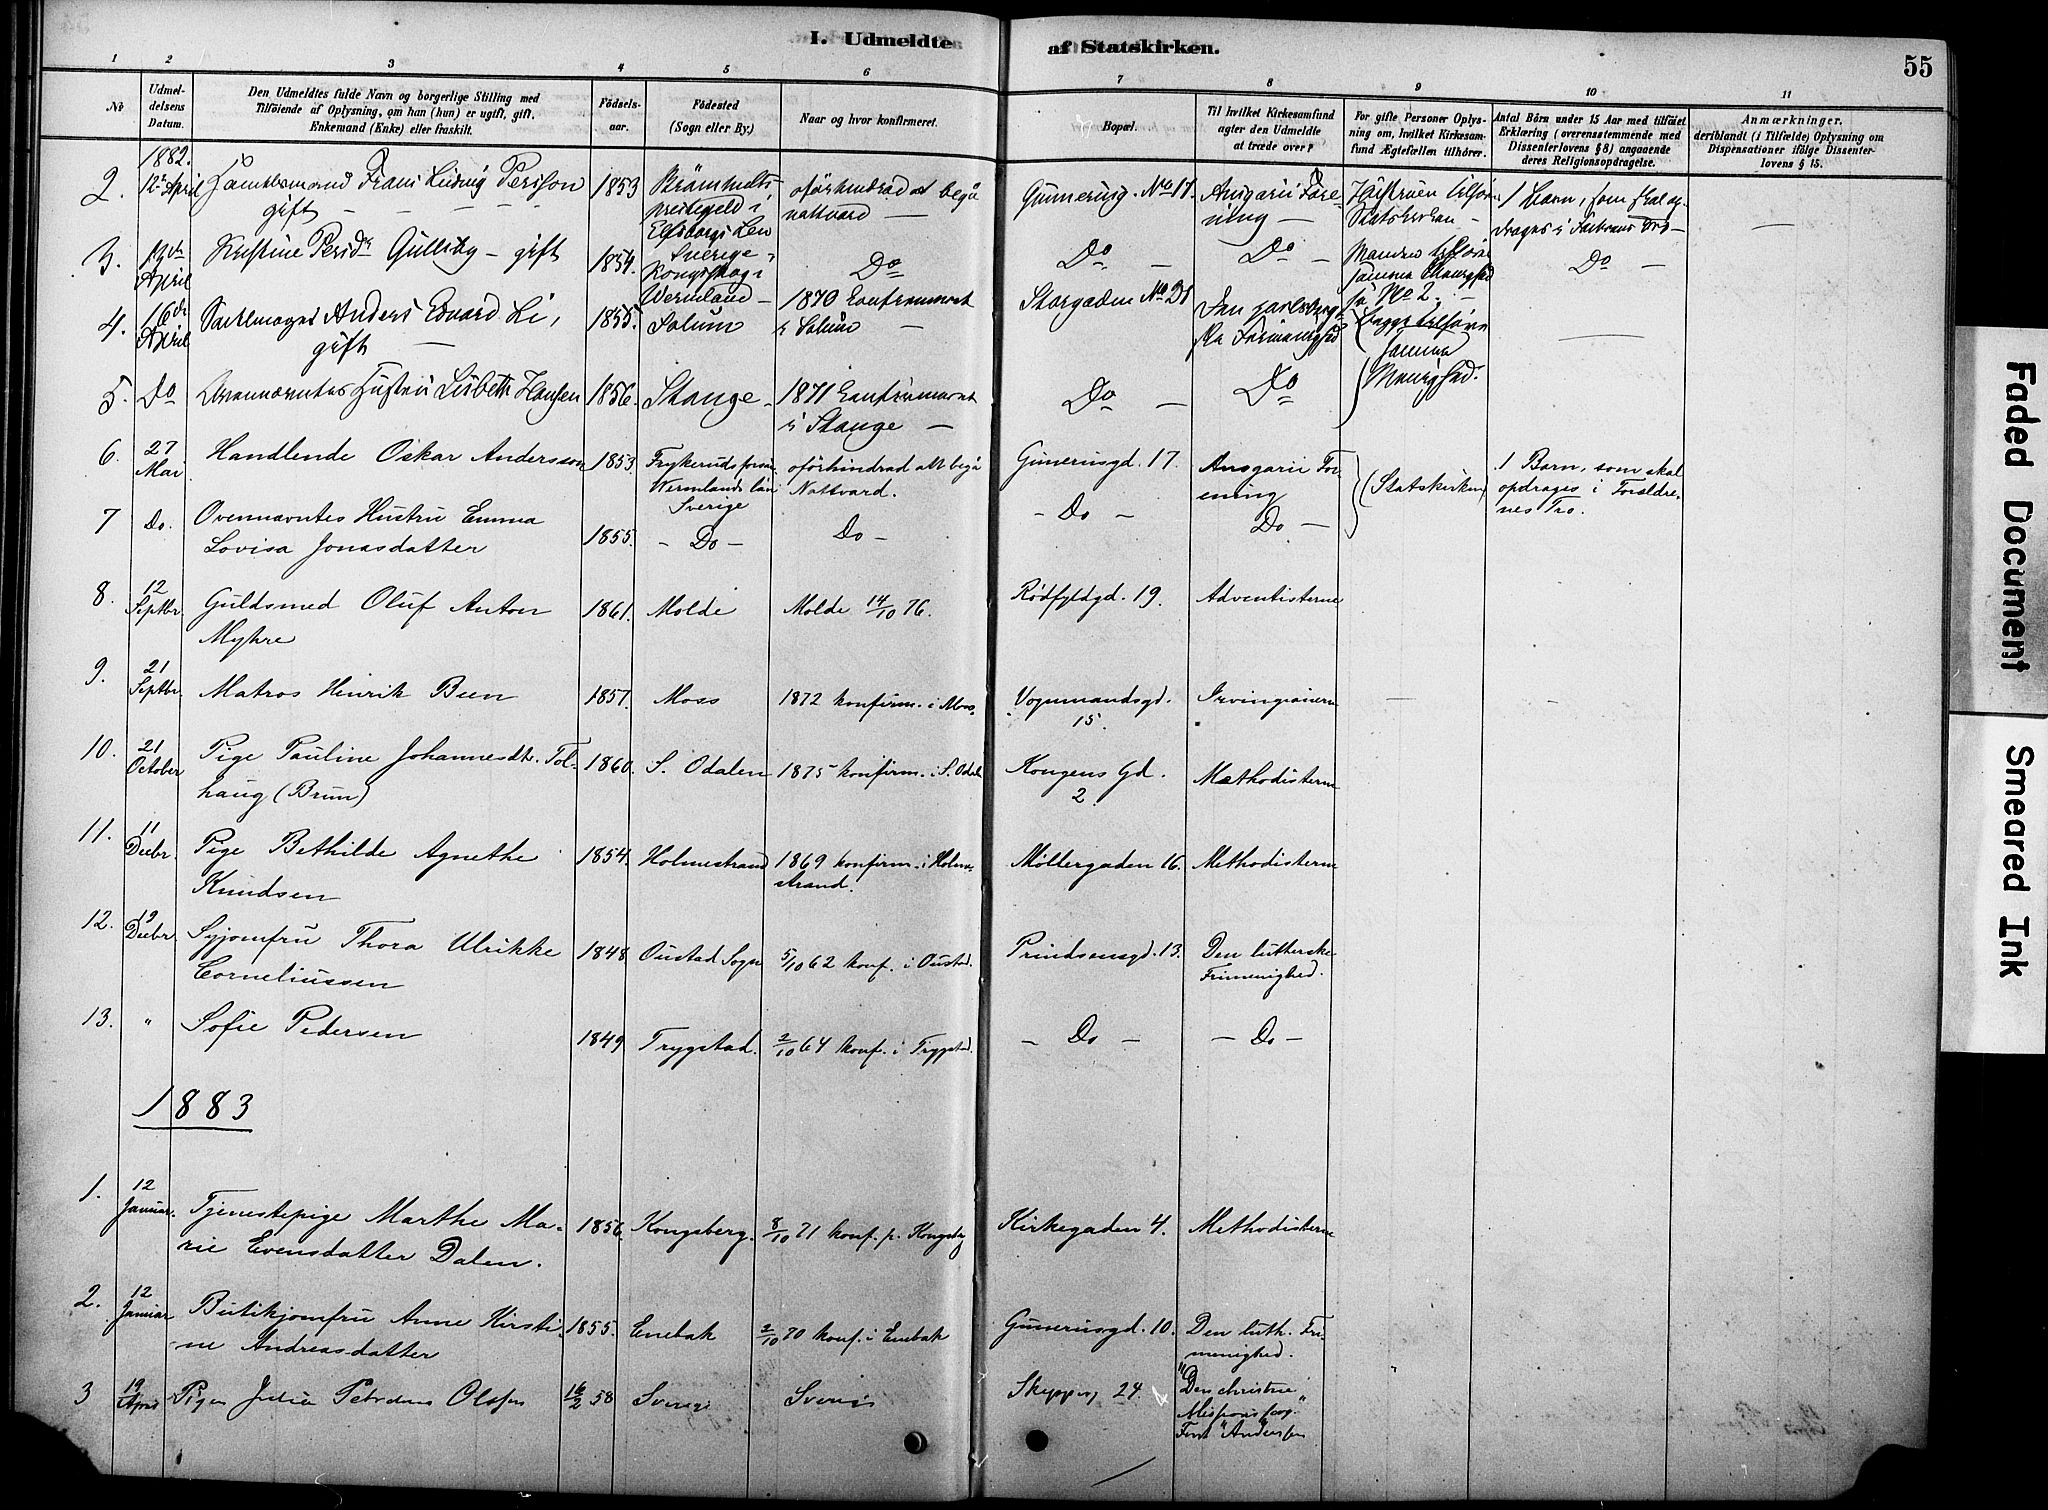 I. Udmeldte af Statskirken.
55
1 2 3 4 5 6 7 8 9 10 11
No
Udmel-
delsens
Datum.
Den Udmeldtes fulde Navn og borgerlige Stilling med
Tilføiende af Oplysning, om han (hun) er ugift, gift,
Enkemand (Enke) eller fraskilt.
Fødsels-
aar.
Fødested
(Sogn eller By.)
Naar og hvor konfirmeret.
Bopæl.
Til hvilket Kirkesamfund
agter den Udmeldte
at træde over?
For gifte Personer Oplys-
ning om, hvilket Kirkesam-
fund Ægtefællen tilhører.
Antal Børn under 15 Aar med tilføiet
Erklæring (overensstemmende med
Dissenterlovens § 8) angaaende
deres Religionsopdragelse.
Anmærkninger,
deriblandt (i Tilfælde) Oplysning om
Dispensationer ifølge Dissenter-
lovens § 15.
1882.
2. 12te April Frans Ludvig Persson 1853 oförhindrad at begå Gunnerusg. No 17. Ansgarii Fore-
gift — prestegeld i nattvard — ning —
Elfsborgs Len
Sverige
3. April Kristine Persdr Gullsby — gift 1854. Do Do — Do — Do —
Wermland —
No 2.
4. 16de April Anders Edvard Li, 1855. Solum 1870 Konfirmeret Storgaden No 21
gift — i Solum —
5. Do Hustru Lisbeth Hansen 1856. Stange — 1871 Konfirmeret Do — Do
i Stange —
6. 27 Mai Handlende Oskar Andersson 1853. oförhindrad att begå Gunerusgd. 17. Ansgarii For- (Statskirken) 1 Barn, som skal
Wermlands län Nattvard. ening opdrages i Forældre-
Sverige nes Tro.
7 Do. Ovennævntes Hustru Emma
Lovisa Jonasdatter 1855. — Do — Do — — Do — Do —
8. 12 Septbr. Guldsmed Oluf Anton 1861. Molde Molde 14/10 76. Rødfyldgd. 19. Adventisterne
Myhre
9. 21 Septbr. Matros Henrik Been 1857. Moss 1872 konfirm. i Moss. Vognmandsgd. Irvingianerne
15.
10. 21 October Pige Pauline Johannesdt. Tol- 1860. S. Odalen 1875 konfirm. i S. Odal Kongens Gd. Methodisterne
haug (Brun) 2.
11. 11 Decbr. Pige Bethilde Agnethe 1854. Holmestrand 1869 konfirm. i Holme- Møllergaden 16. Methodisterne
Knudsen strand.
12. 12 Decbr. Syjomfru Thora Ulrikke 1848 Oustad Sogn 5/10 62 konf. i Oustad. Prindsensgd. 13. Den lutherske
Corneliussen Frimenighed.
13. " Sofie Pedersen 1849 Trygstad. 2/10 64 konf. i Trygstad. — Do — — Do —
1883
1. 12 Januar. Tjenestepige Marthe Ma- 1856. Kongsberg. 8/10 71 konf. p. Kongsbg Kirkegaden 4. Methodisterne
rie Evensdatter Dalen.
2. 12 Januar Butikjomfru Anne Kirsti- 1855. Enebak 2/10 70 konf. i Enebak Gunerusgd. 10. Den luth. Fri-
ne Andreasdatter menighed.
3 19 April Pigen Julia Olsen 16/2 58 Sverige Sverig Skipperg 24. "Den christne
Andersen
Faded Document
Smeared Ink